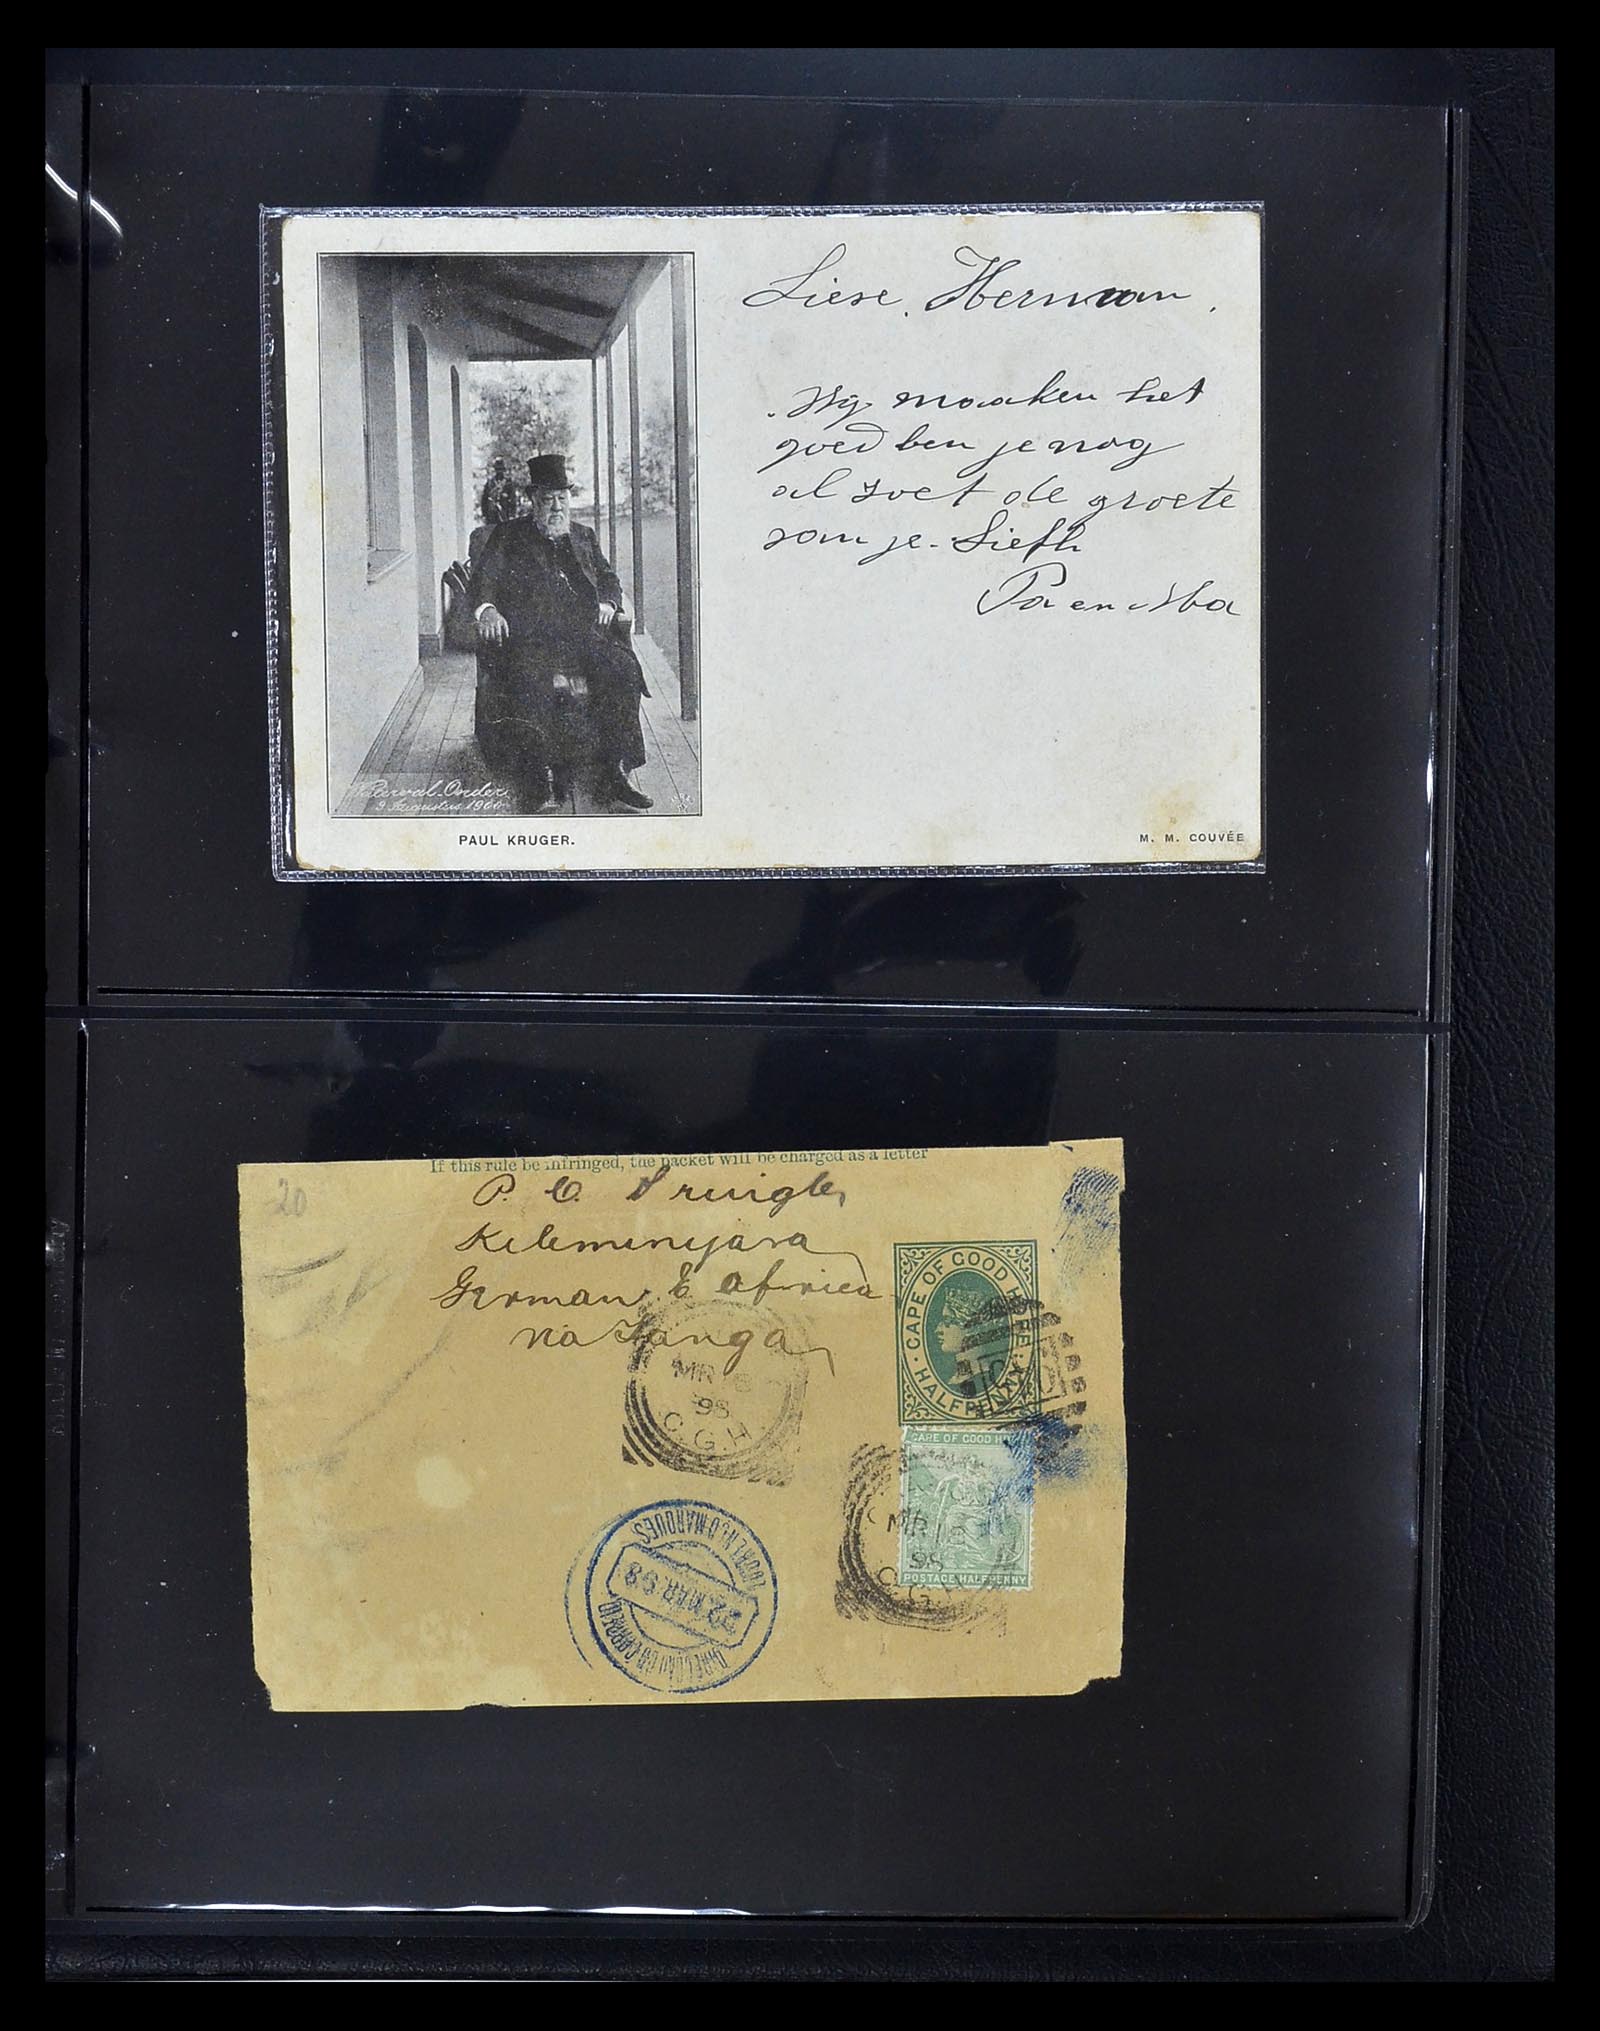 Lieve Herman.
Wij maaken het
goed ben je nog
al zoet de groete
van je Liefh
Pa en Ma
Waterval-Onder
9 Augustus 1900
PAUL KRUGER.
M. M. COUVÉE
If this rule be infringed, the packet will be charged as a letter
20
P. C.
Kilemenyara
German E Africa
via Tanga
CAPE OF GOOD HOPE
HALFPENNY
MR 18
98
C.G.H
CAPE OF GOOD HOPE
POSTAGE HALFPENNY
MR 18
98
C.G.H
LOURENÇO MARQUES
22 MAR. 98
DIRECÇÃO DO CORREIO